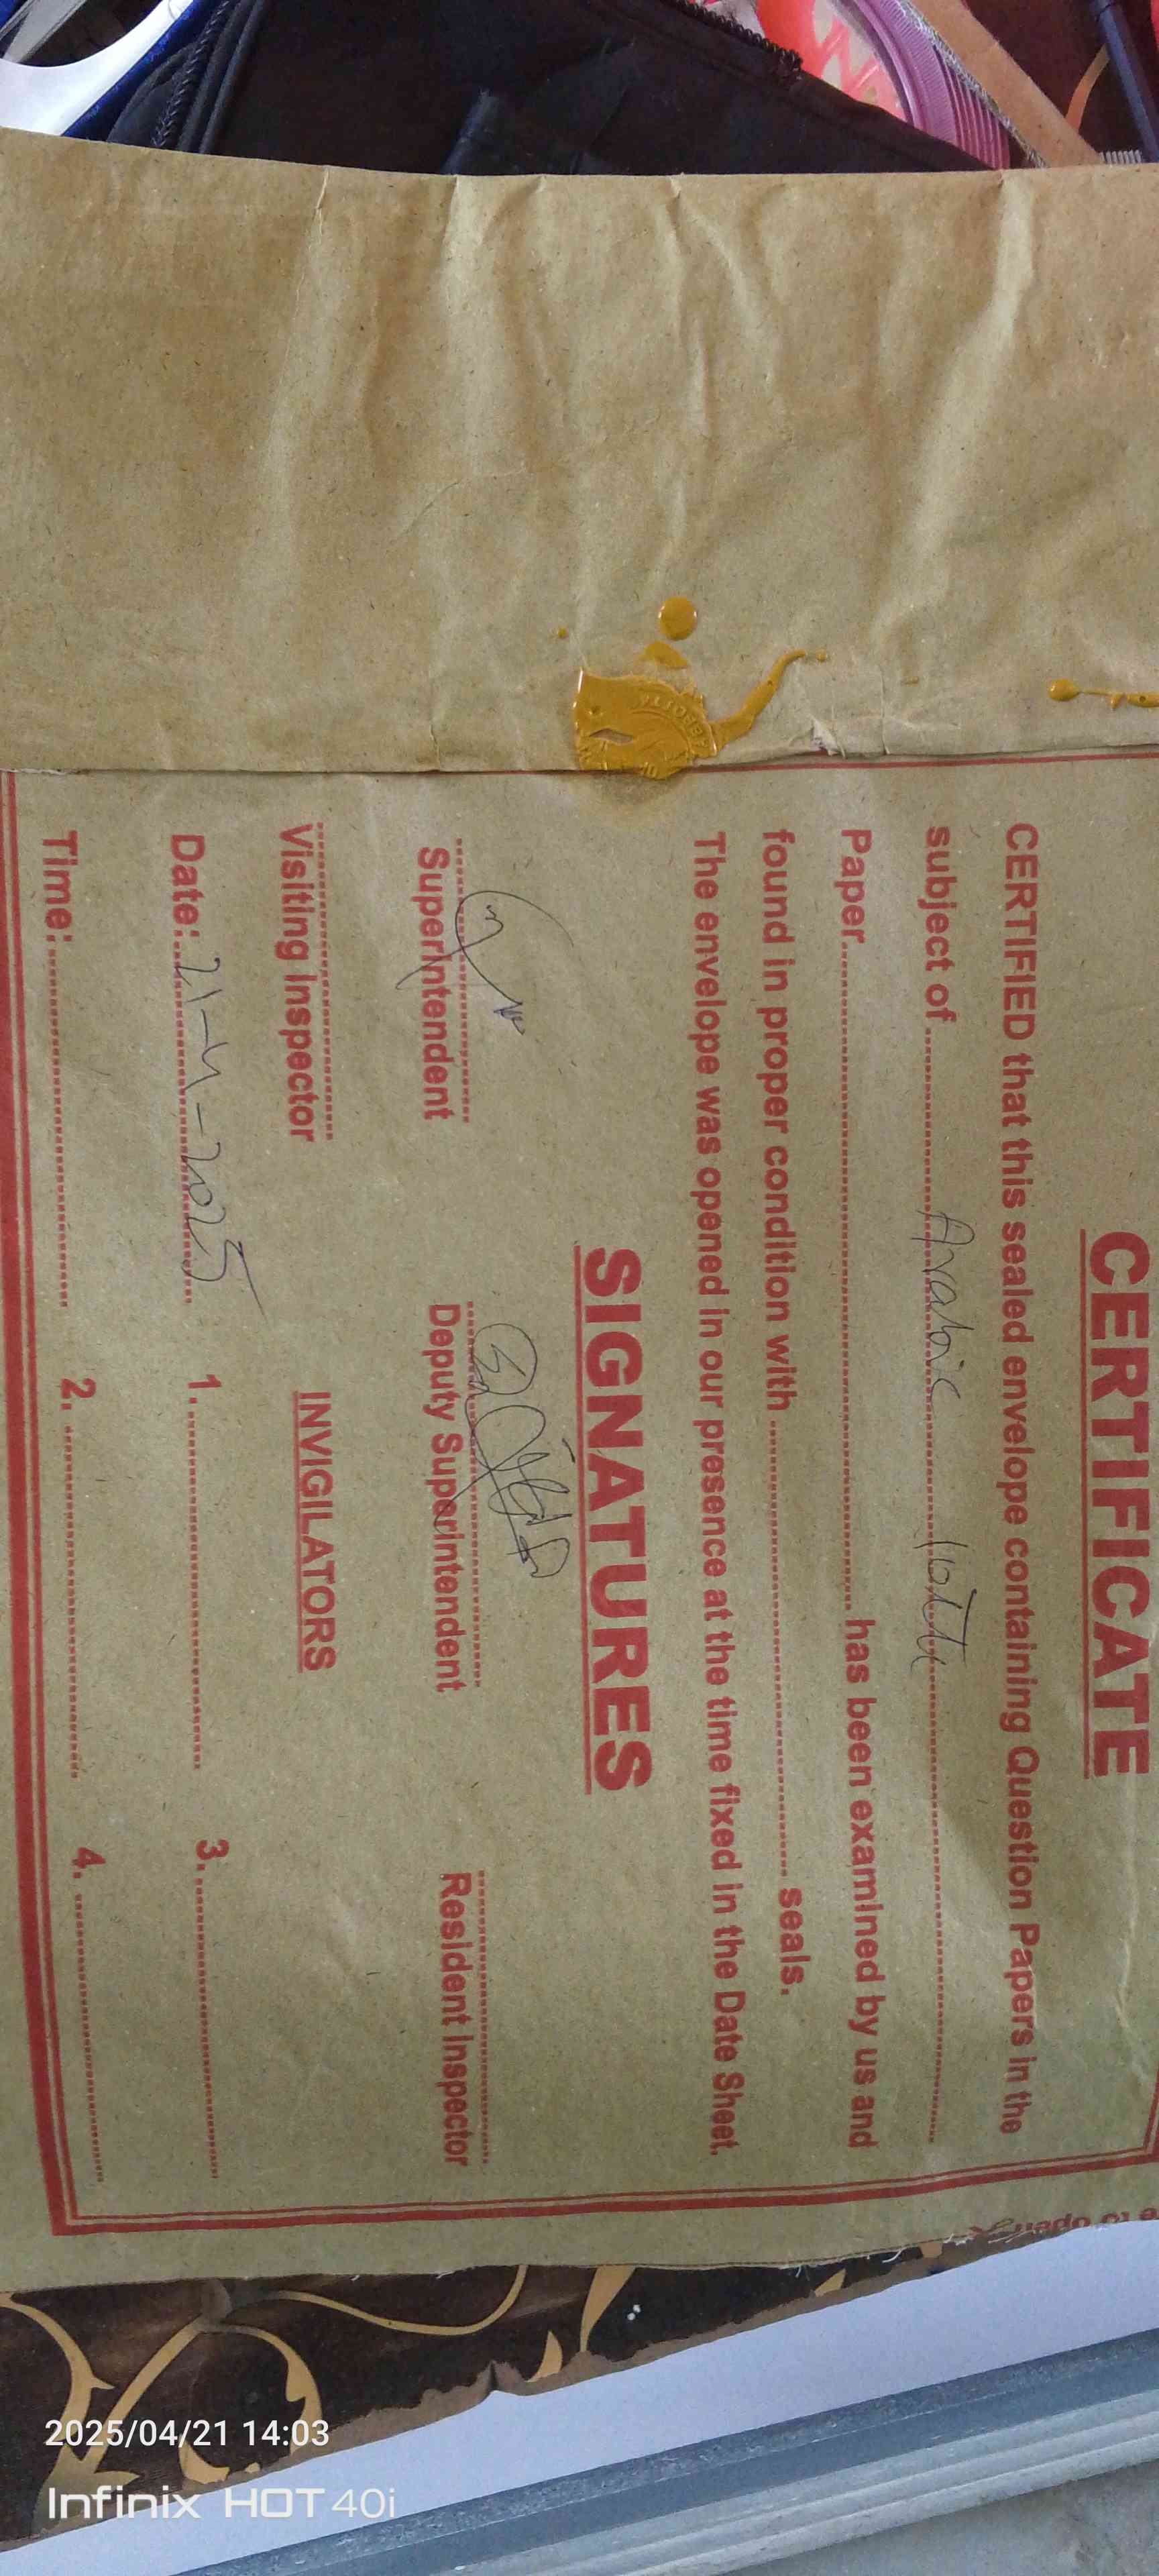 CERTIFICATE
CERTIFIED that this sealed envelope containing Question Papers in the
subject of Arabic 10th
Paper has been examined by us and
found in proper condition with seals.
The envelope was opened in our presence at the time fixed in the Date Sheet.
SIGNATURES
Superintendent Deputy Superintendent Resident Inspector
Visiting Inspector INVIGILATORS
Date: 21-4-2025 1. 3.
Time: 2. 4.
to open
2025/04/21 14:03
Infinix HOT 40i